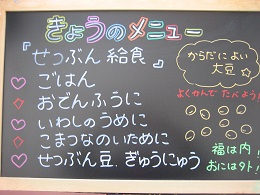 きょうのメニュー
『せつぶん給食』
ごはん
おでんふうに
いわしのうめに
こまつなのいために
せつぶん豆.ぎゅうにゅう
からだによい
大豆
よくかんでたべよう!
福は内!
おには外!